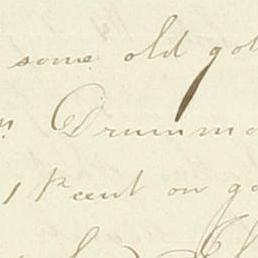 some old go
Drummo
1 P cent on go